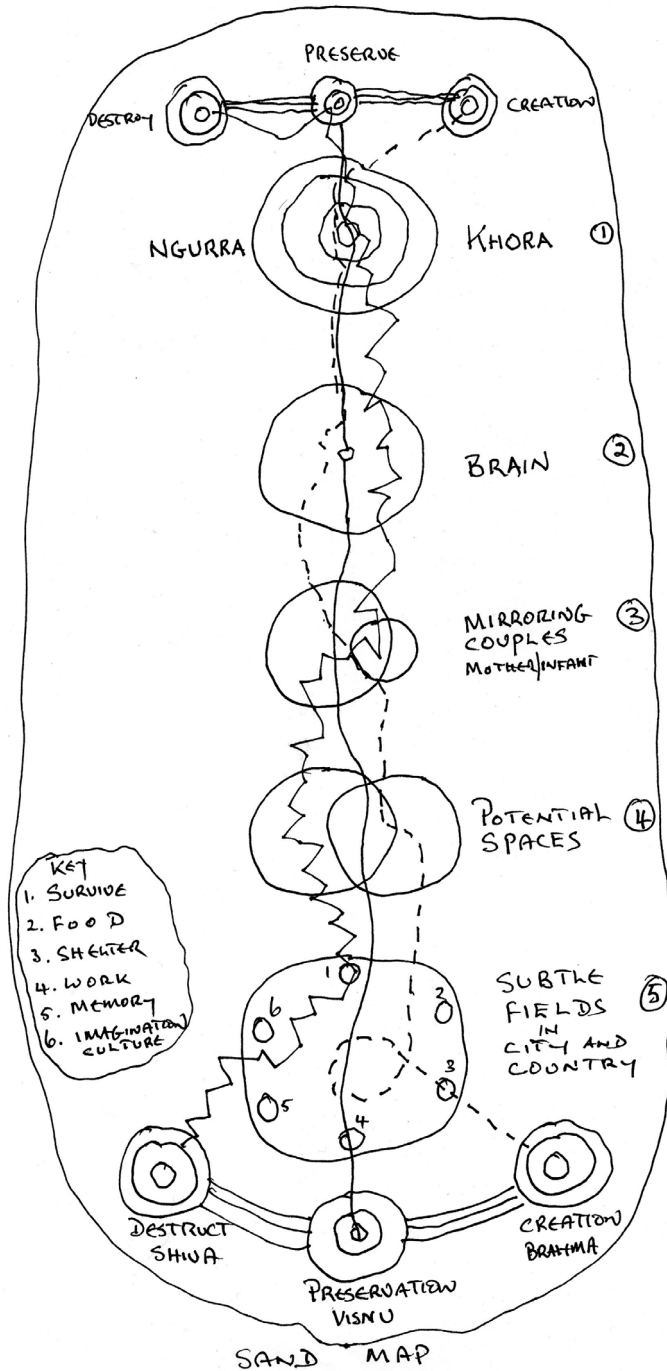 PRESERVE
DESTROY
CREATION
NGURRA
KHORA
1
BRAIN
2
MIRRORING
COUPLES
MOTHER/INFANT
3
POTENTIAL
SPACES
4
KEY
1. SURVIVE
2. FOOD
3. SHELTER
4. WORK
5. MEMORY
6. IMAGINATION
CULTURE
1
2
3
4
5
6
SUBTLE
FIELDS
IN
CITY AND
COUNTRY
5
DESTRUCT
SHIVA
PRESERVATION
VISNU
CREATION
BRAHMA
SAND MAP